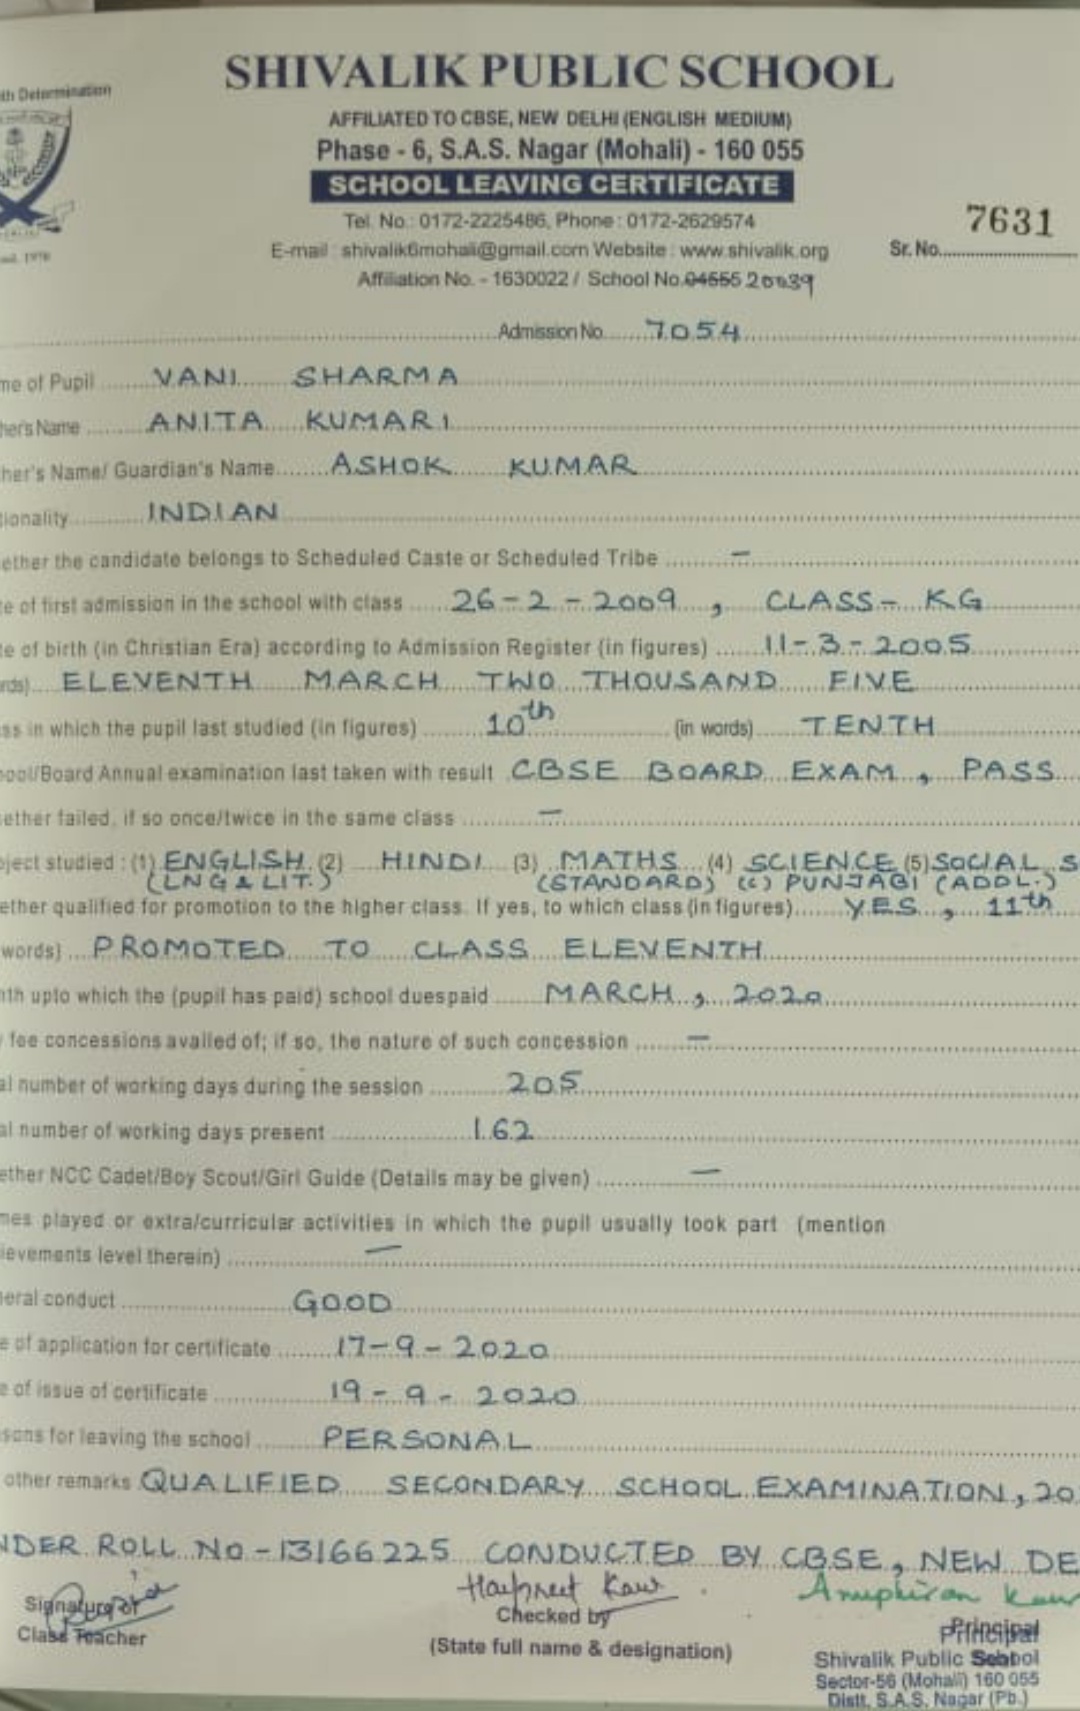 SHIVALIK PUBLIC SCHOOL
th Determination
AFFILIATED TO CBSE, NEW DELHI (ENGLISH MEDIUM)
Phase - 6, S.A.S. Nagar (Mohali) - 160 055
SCHOOL LEAVING CERTIFICATE
Tel. No.: 0172-2225486, Phone : 0172-2629574
7631
E-mail : shivalik6mohali@gmail.com Website : www.shivalik.org
Sr. No.
Affiliation No. - 1630022 / School No. 04555 20039
Admission No. 7054
me of Pupil VANI SHARMA
her's Name ANITA KUMARI
her's Name/ Guardian's Name ASHOK KUMAR
ionality INDIAN
ether the candidate belongs to Scheduled Caste or Scheduled Tribe —
te of first admission in the school with class 26-2-2009, CLASS- KG
te of birth (in Christian Era) according to Admission Register (in figures) 11-3-2005
rds) ELEVENTH MARCH TWO THOUSAND FIVE
ss in which the pupil last studied (in figures) 10th (in words) TENTH
ool/Board Annual examination last taken with result CBSE BOARD EXAM, PASS
ether failed, if so once/twice in the same class —
ject studied : (1) ENGLISH (2) HINDI (3) MATHS (4) SCIENCE (5) SOCIAL S
(LNG & LIT.) (STANDARD) (6) PUNJABI (ADDL.)
ether qualified for promotion to the higher class. If yes, to which class (in figures) YES, 11th
words) PROMOTED TO CLASS ELEVENTH
nth upto which the (pupil has paid) school duespaid MARCH, 2020
fee concessions availed of; if so, the nature of such concession —
al number of working days during the session 205
al number of working days present 162
ether NCC Cadet/Boy Scout/Girl Guide (Details may be given) —
mes played or extra/curricular activities in which the pupil usually took part (mention
ievements level therein) —
neral conduct GOOD
e of application for certificate 17-9-2020
e of issue of certificate 19-9-2020
sons for leaving the school PERSONAL
other remarks QUALIFIED SECONDARY SCHOOL EXAMINATION, 20
NDER ROLL NO-13166225 CONDUCTED BY CBSE, NEW DE
Harpreet Kaur
Anupkiran Kaur
Signature of
Class Teacher
Checked by
(State full name & designation)
Principal
Principal
Shivalik Public School
Sector-56 (Mohali) 160 055
Distt. S.A.S. Nagar (Pb.)